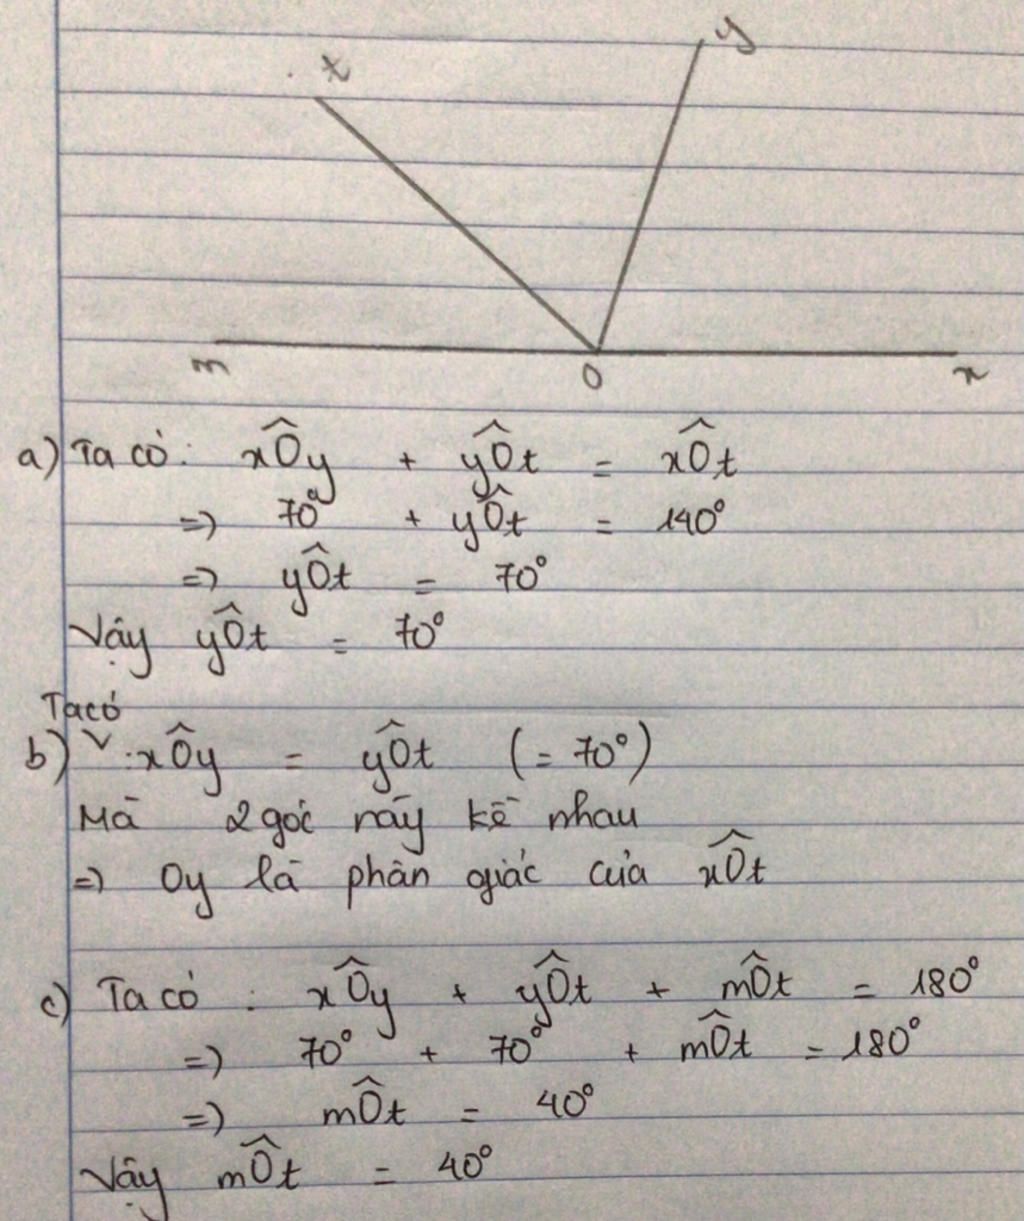 t
y
m
O
x
a) Ta có: xÔy + yÔt = xÔt
=> 70° + yÔt = 140°
=> yÔt = 70°
Vậy yÔt = 70°
Ta có
b) ˅ : xÔy = yÔt (= 70°)
Mà 2 góc này kề nhau
=> Oy là phân giác của xÔt
c) Ta có : xÔy + yÔt + mÔt = 180°
=> 70° + 70° + mÔt = 180°
=> mÔt = 40°
Vậy mÔt = 40°